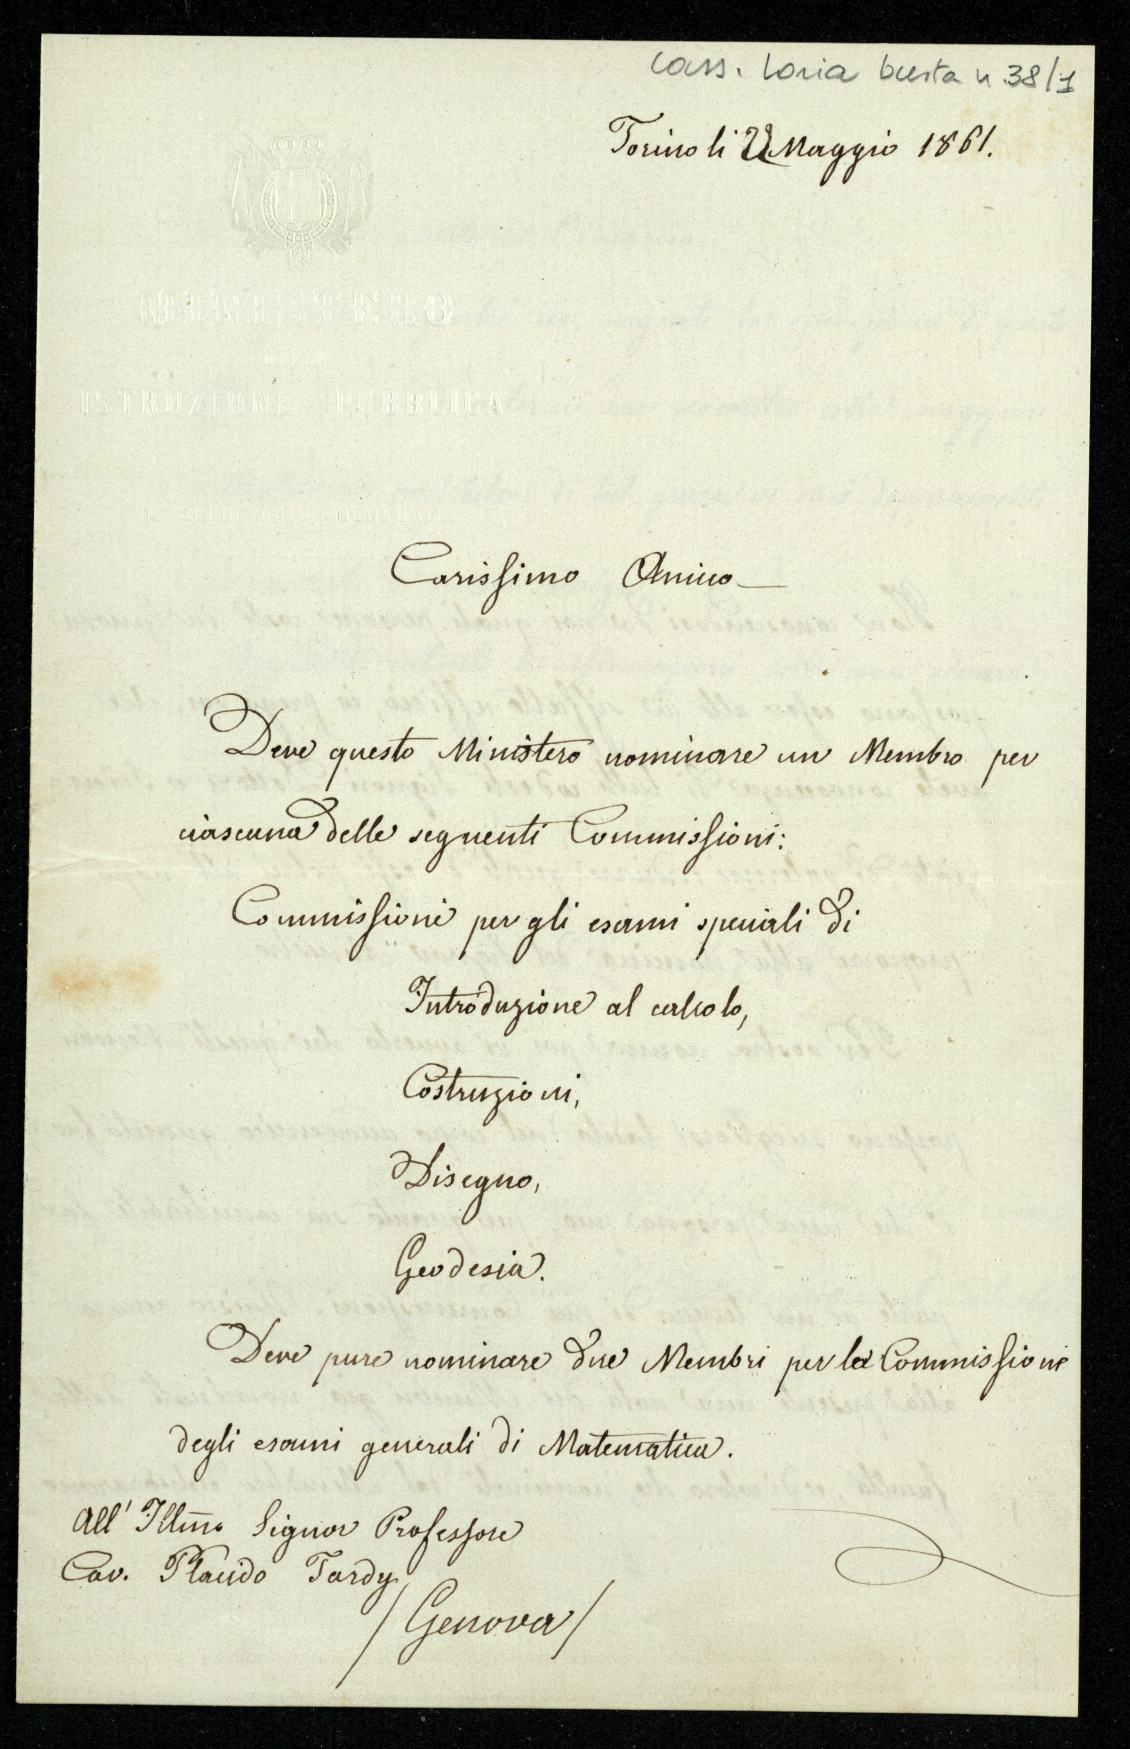 Cass. Loria busta n. 38/1
Torino li 22 Maggio 1861.
MINISTERO
ISTRUZIONE PUBBLICA
Carissimo Amico
Deve questo Ministero nominare un Membro per
ciascuna delle seguenti Commissioni:
Commissioni per gli esami speciali di
Introduzione al calcolo,
Costruzioni,
Disegno,
Geodesia.
Deve pure nominare due Membri per la Commissione
degli esami generali di Matematica.
All' Illmo Signor Professore
Cav. Placido Tardy
/Genova/